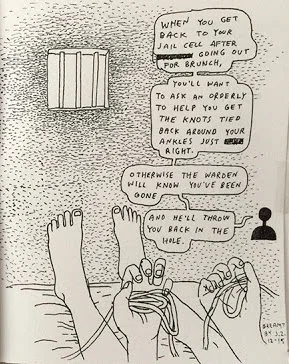 WHEN YOU GET
BACK TO YOUR
JAIL CELL AFTER
GOING OUT
FOR BRUNCH,
YOU'LL WANT
TO ASK AN ORDERLY
TO HELP YOU GET
THE KNOTS TIED
BACK AROUND YOUR
ANKLES JUST
RIGHT.
OTHERWISE THE WARDEN
WILL KNOW YOU'VE BEEN
GONE
AND HE'LL THROW
YOU BACK IN THE
HOLE.
DREAMT
BY J.Z.
12-15